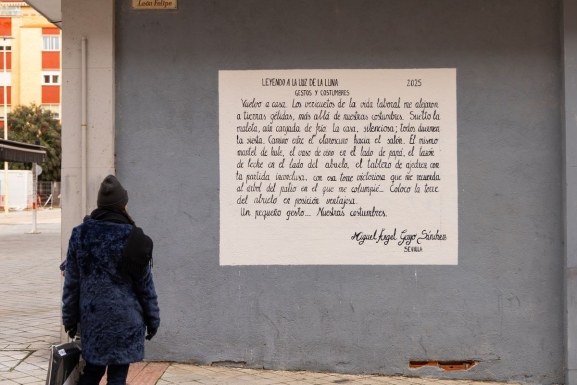 León Felipe
LEYENDO A LA LUZ DE LA LUNA 2025
GESTOS Y COSTUMBRES
Vuelvo a casa. Los vericuetos de la vida laboral me alejaron
a tierras gélidas, más allá de nuestras costumbres. Suelto la
maleta, aún cargada de frío. La casa, silenciosa; todos duermen
la siesta. Camino sobre el claroscuro hacia el salón. El mismo
mantel de hule, el vaso de vino en el lado de papá, el tazón
de leche en el lado del abuelo, el tablero de ajedrez con
la partida inconclusa, con esa torre victoriosa que me recuerda
al árbol del patio en el que me columpié. Coloco la torre
del abuelo en posición ventajosa.
Un pequeño gesto... Nuestras costumbres.
Miguel Ángel Gayo Sánchez
SEVILLA